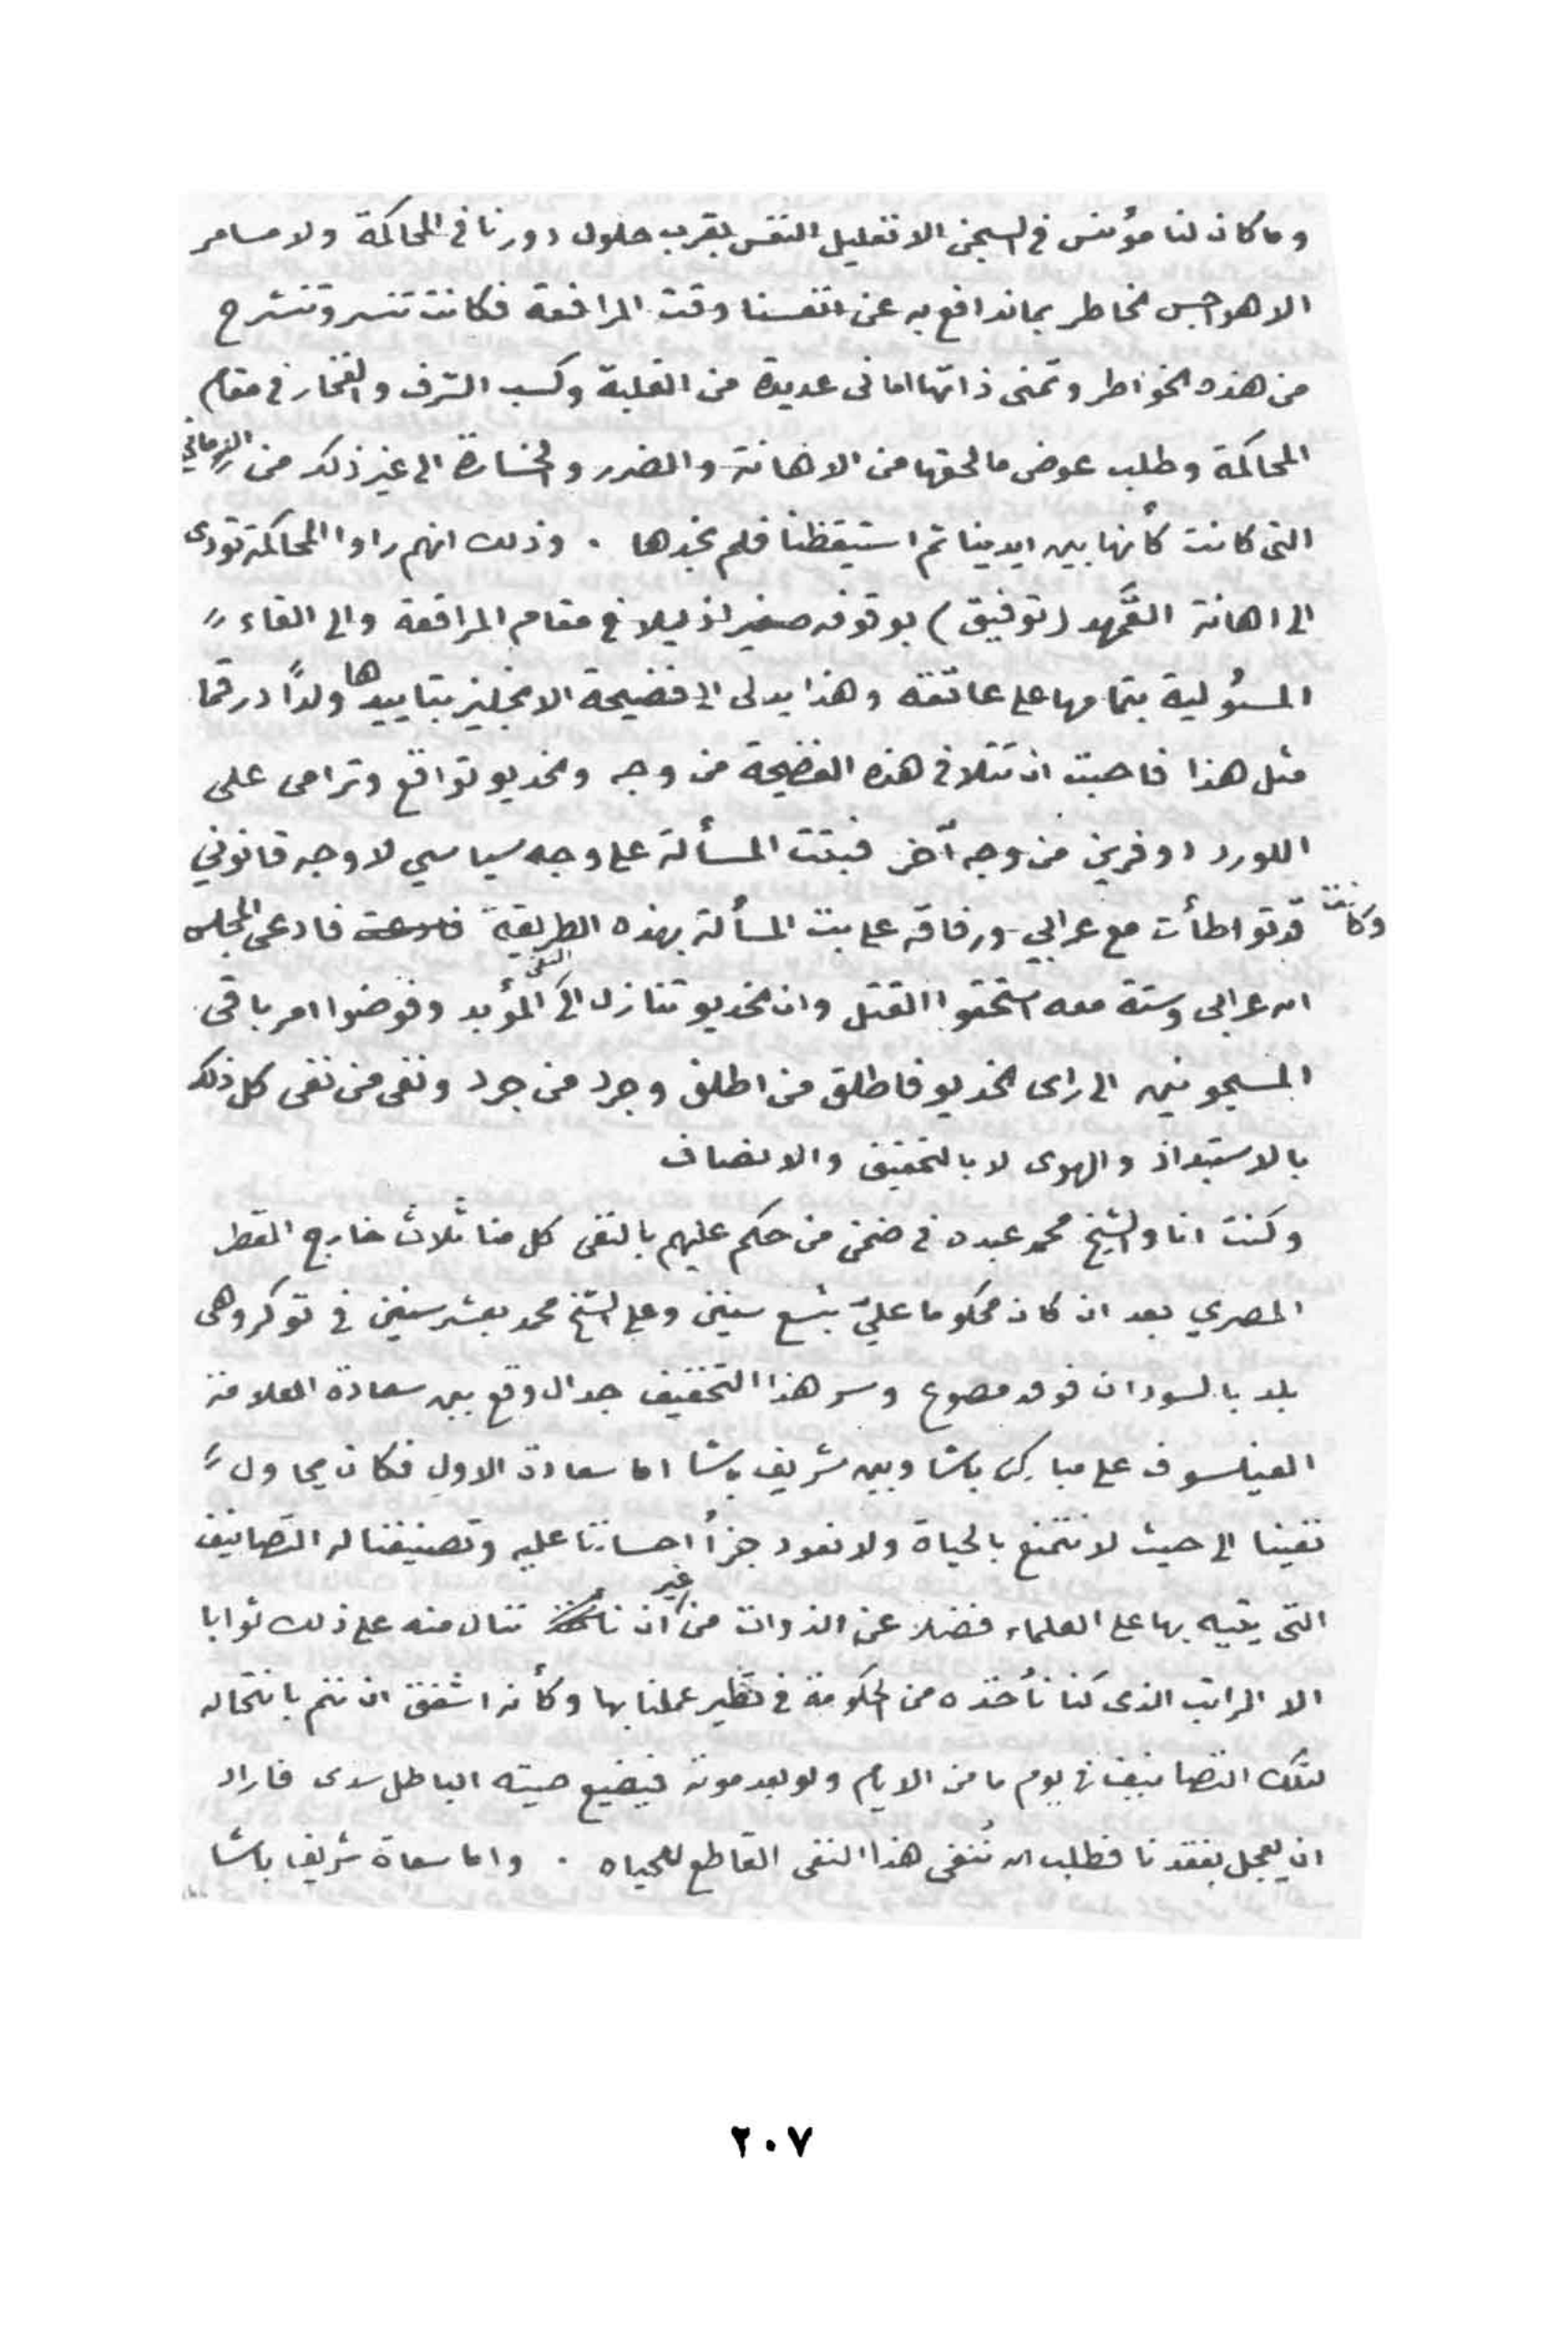 وما كان لنا مؤنس في السجن الا تعليل النفس بقرب حلول دورنا في المحاكمة ولا مسامر
الا هواجس الخاطر بما ندافع به عن انفسنا وقت المرافعة فكانت تسر وتنشرح
من هذه الخواطر وتمنى ذاتها اماني عديدة من الغلبة وكسب الشرف والفخار في مقام
المحاكمة وطلب عوض ما لحقها من الاهانة والضرر والخسارة الى غير ذلك من الاماني
التى كانت كأنها بين ايدينا ثم استيقظنا فلم نجدها . وذلك انهم راوا المحاكمة تودى
الى اهانة (توفيق) بوقوفه صغير ذليلا في مقام المرافعة والى القاء
المسؤلية بتمامها على عاتقه وهذا يدلى الى فضيحة الانجليز بتاييدها ولداً درقما
مثل هذا فاحبت ان تتلافى هذه الفضيحة من وجه والخديو تواقع وترامى على
اللورد دوفرين من وجه آخر فبتت المسألة على وجه سياسي لا وجه قانوني
وكانت قد تواطأت مع عرابي ورفاقه على بت المسألة بهذه الطريقة فادعى المجلس
ان عرابى وستة معه استحقوا القتل وان الخديو تنازل الى النفى المؤبد وفوضوا امر باقى
المسجونين الى راى الخديو فاطلق من اطلق وجرد من جرد ونفى من نفى كل ذلك
بالاستبداد والهوى لا بالتحقيق والانصاف
وكنت انا والشيخ محمد عبده في ضمن من حكم عليهم بالنفى كل منا ثلاث خارج القطر
المصري بعد ان كان محكوما عليّ بتسع سنين وعلى الشيخ محمد بعشر سنين في توكر وهى
بلد بالسودان فوق مصوع وسر هذا التخفيف جدال وقع بين سعادة العلامة
الفيلسوف على مبارك باشا وبين شريف باشا اما سعادة الاول فكان يحاول
نفينا الى حيث لا نتمتع بالحياة ولا نعود جزأ احساننا عليه وتصنيفنا له التصانيف
التى يتيه بها على العلماء فضلا عن الذوات من غير ان ننال منه على ذلك ثوابا
الا الراتب الذى كنا نأخذه من الحكومة في نظير عملنا بها وكأنه اشفق ان ننم بانتحاله
لتلك التصانيف في يوم ما من الايام ولو بعد موته فيضيع صيته الباطل سدى فاراد
ان يعجل بفقدنا فطلب ان نُنفى هذا النفى القاطع للحياه . واما سعاة شريف باشا
٢٠٧